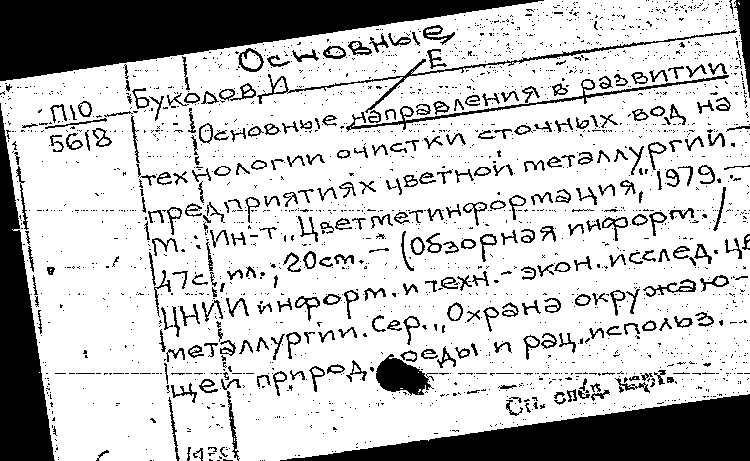 Основные
Е
П10
5618
Буколов, И
Основные направления в развитии
технологии очистки сточных вод на
предприятиях цветной металлургии. –
м. : Ин-т „Цветметинформация", 1979. –
47с., ил. ; 20см. – (Обзорная информ. /
ЦНИИ информ. и техн. – экон. исслед. цв
металлургии. Сер. „Охрана окружаю-
щей природ. среды и рац. использ.
См. след. карт.